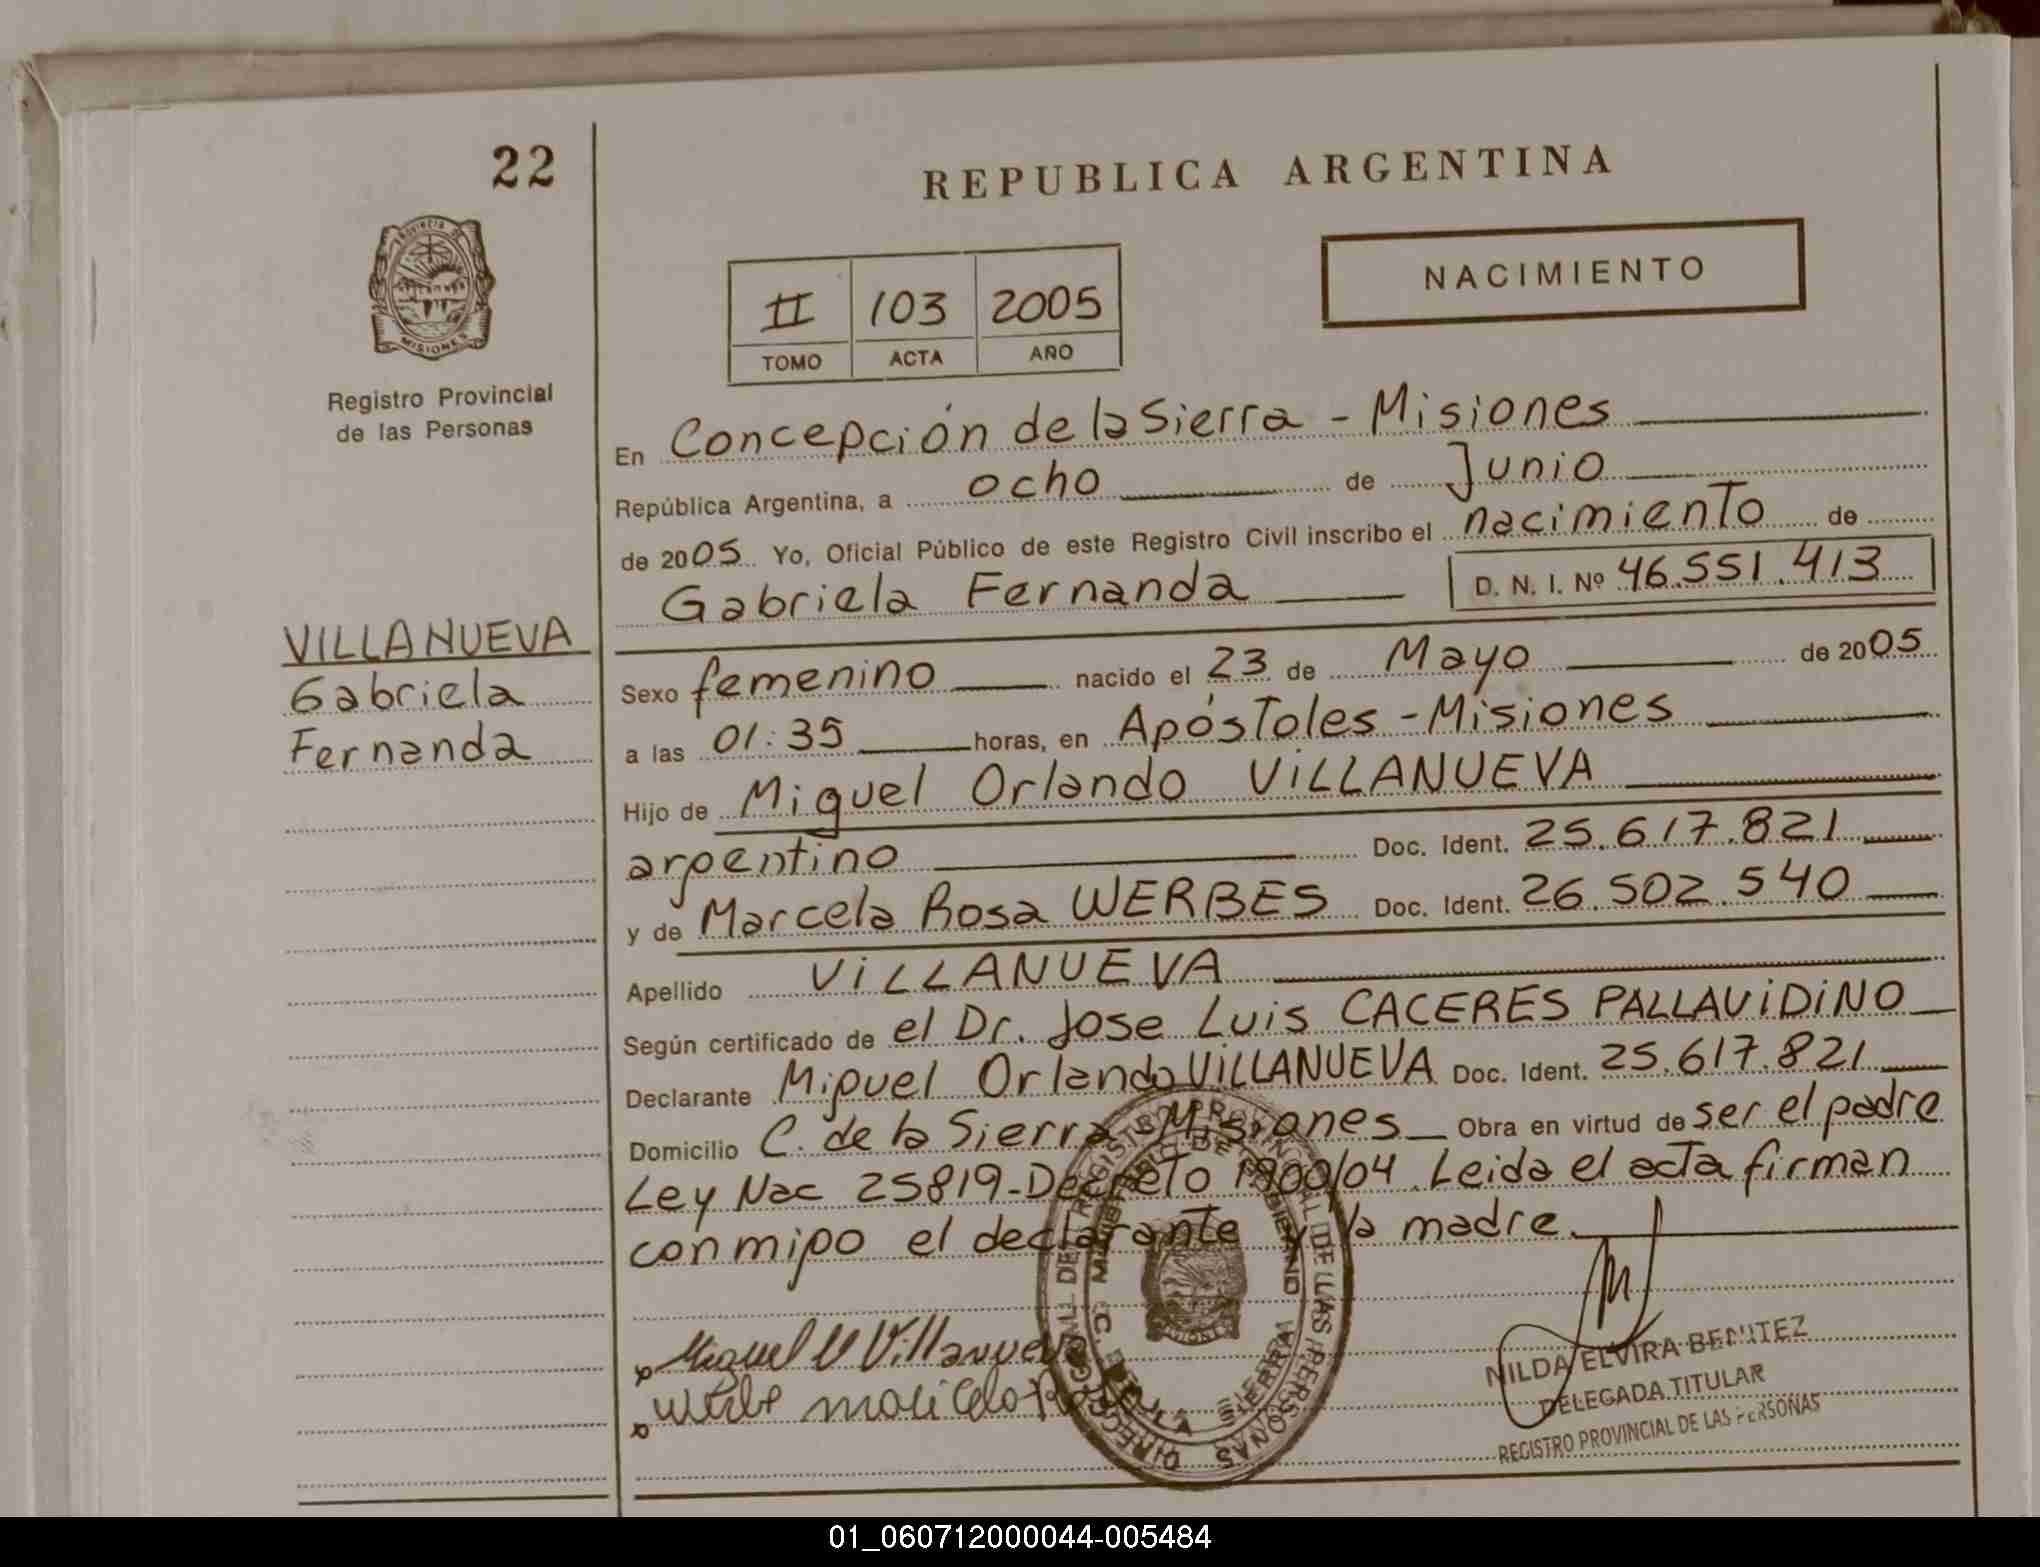 22
REPUBLICA ARGENTINA
NACIMIENTO
II 103 2005
TOMO ACTA AÑO
PROVINCIA DE
MISIONES
Registro Provincial
de las Personas
En Concepción de la Sierra - Misiones
República Argentina, a ocho de Junio
de 2005 Yo, Oficial Público de este Registro Civil inscribo el nacimiento de
Gabriela Fernanda D. N. I. Nº 46.551.413
VILLANUEVA
Gabriela
Fernanda
Sexo femenino nacido el 23 de Mayo de 2005
a las 01:35 horas, en Apóstoles - Misiones
Hijo de Miguel Orlando VILLANUEVA
argentino Doc. Ident. 25.617.821
y de Marcela Rosa WERBES Doc. Ident. 26.502.540
Apellido VILLANUEVA
Según certificado de el Dr. Jose Luis CACERES PALLAVIDINO
Declarante Miguel Orlando VILLANUEVA Doc. Ident. 25.617.821
Domicilio C. de la Sierra - Misiones Obra en virtud de ser el padre
Ley Nac 25819 - Decreto 1900/04. Leida el acta firman
conmigo el declarante y la madre.
Miguel O Villanueva
NILDA ELVIRA BENITEZ
DELEGADA TITULAR
REGISTRO PROVINCIAL DE LAS PERSONAS
01_060712000044-005484